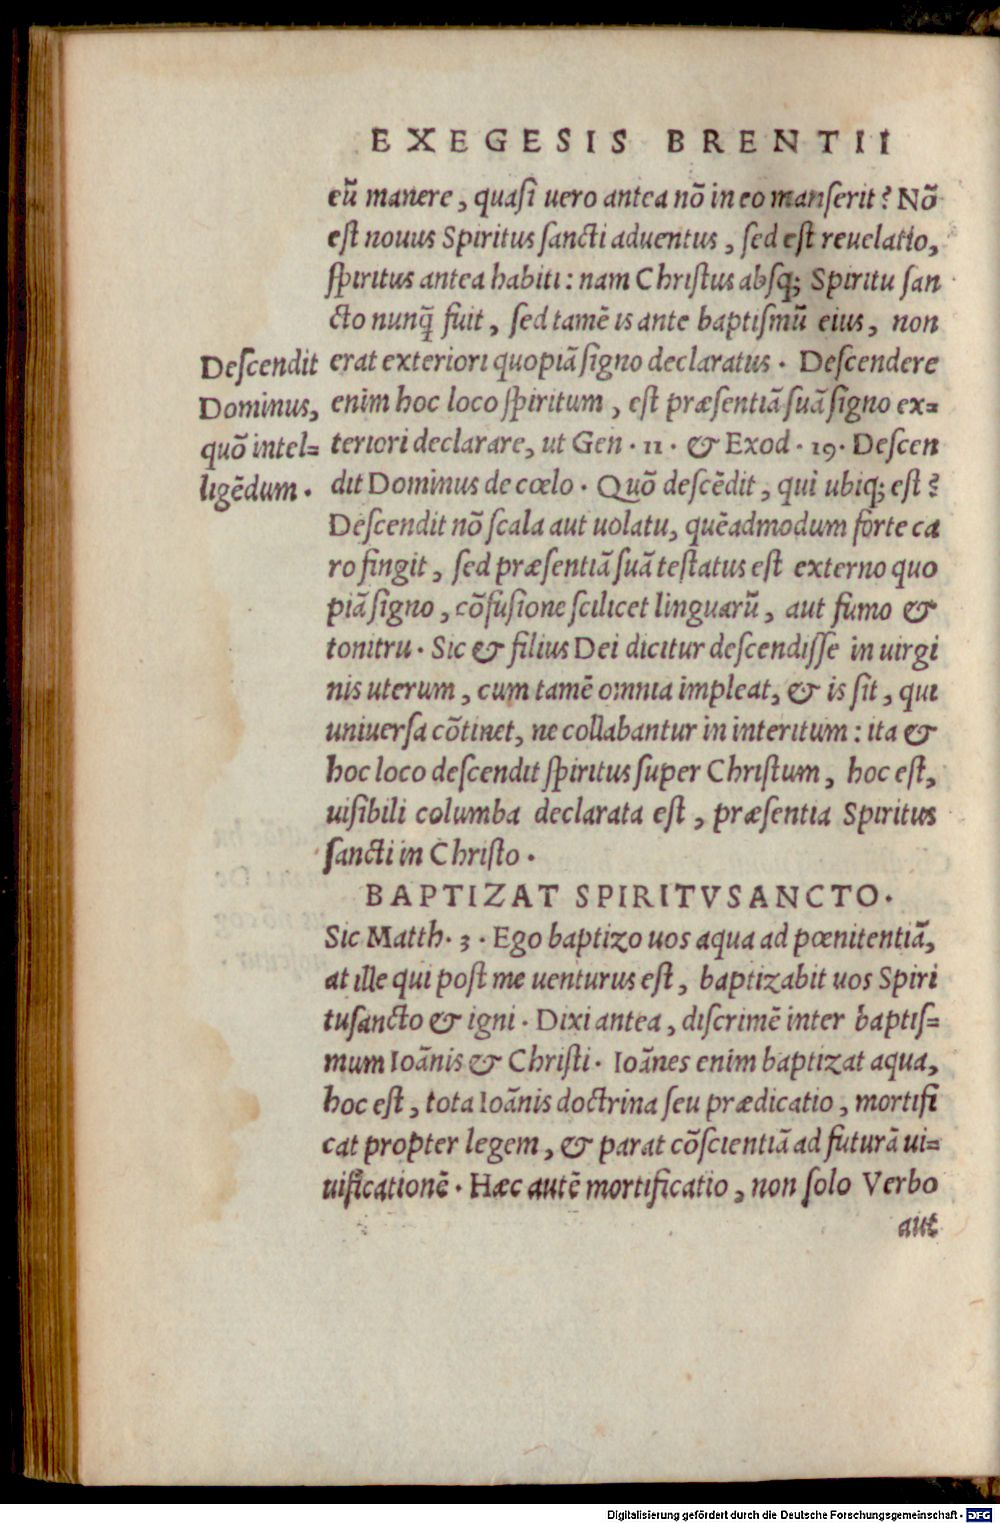 EXEGESIS BRENTII
eũ manere, quaſi uero antea nõ in eo manſerit? Nõ
eſt nouus Spiritus ſancti aduentus, ſed eſt reuelatio,
ſpiritus antea habiti: nam Chriſtus abſq; Spiritu ſan
cto nunq̃ fuit, ſed tamẽ is ante baptiſmũ eius, non
erat exteriori quopiã ſigno declaratus. Deſcendere
enim hoc loco ſpiritum, eſt præſentiã ſuã ſigno ex=
teriori declarare, ut Gen. 11. & Exod. 19. Deſcen
dit Dominus de cœlo. Quõ deſcẽdit, qui ubiq; eſt?
Deſcendit nõ ſcala aut uolatu, quẽadmodum forte ca
ro fingit, ſed præſentiã ſuã teſtatus eſt externo quo
piã ſigno, cõfuſione ſcilicet linguarũ, aut fumo &
tonitru. Sic & filius Dei dicitur deſcendiſſe in uirgi
nis uterum, cum tamẽ omnia impleat, & is ſit, qui
uniuerſa cõtinet, ne collabantur in interitum: ita &
hoc loco deſcendit ſpiritus ſuper Chriſtum, hoc eſt,
uiſibili columba declarata eſt, præſentia Spiritus
ſancti in Chriſto.
Deſcendit
Dominus,
quõ intel=
ligẽdum.
BAPTIZAT SPIRITVSANCTO.
Sic Matth. 3. Ego baptizo uos aqua ad pœnitentiã,
at ille qui poſt me uenturus eſt, baptizabit uos Spiri
tuſancto & igni. Dixi antea, diſcrimẽ inter baptiſ=
mum Ioãnis & Chriſti. Ioãnes enim baptizat aqua,
hoc eſt, tota Ioãnis doctrina ſeu prædicatio, mortifi
cat propter legem, & parat cõſcientiã ad futurã ui=
uificationẽ. Hæc autẽ mortificatio, non ſolo Verbo
aut
Digitalisierung gefördert durch die Deutsche Forschungsgemeinschaft - DFG